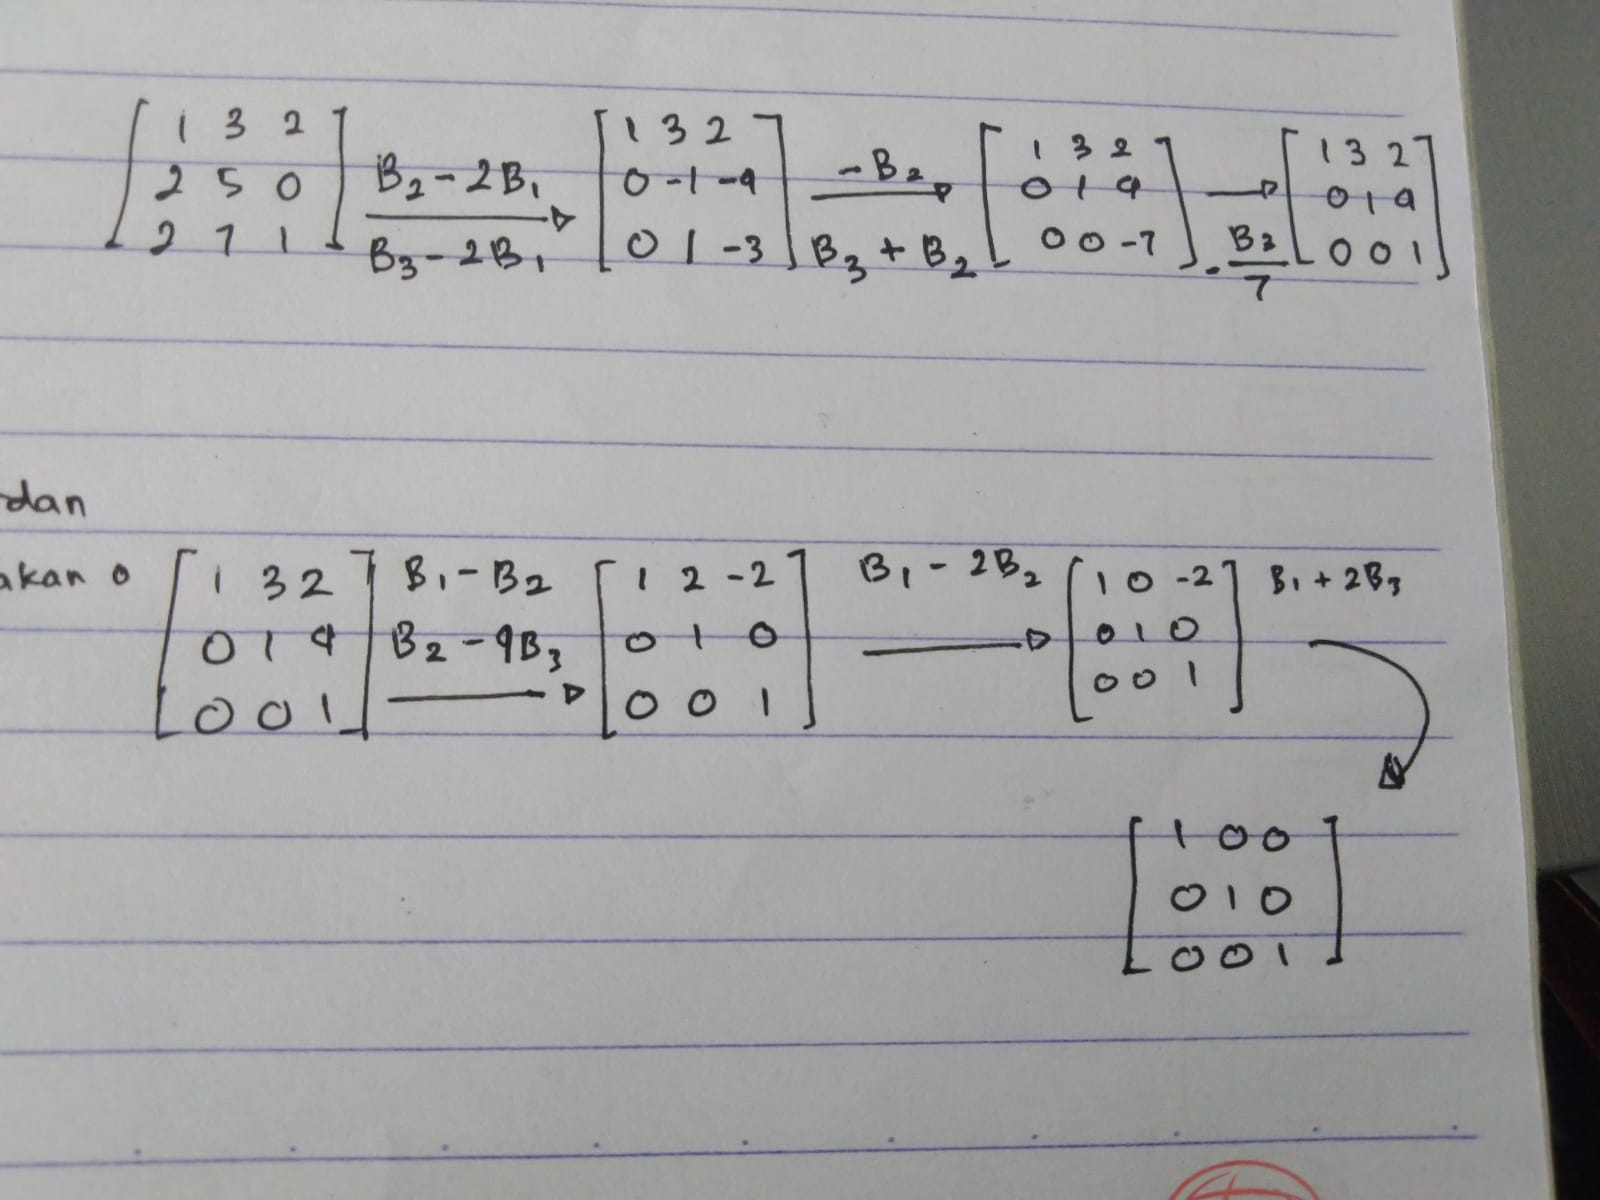 [1 3 2; 2 5 0; 2 7 1] B2 - 2B1 → B3 - 2B1 [1 3 2; 0 -1 -4; 0 1 -3] -B2 → B3 + B2 [1 3 2; 0 1 4; 0 0 -7] → -B3/7 [1 3 2; 0 1 4; 0 0 1]
dan
akan 0 [1 3 2; 0 1 4; 0 0 1] B1 - B2 B2 - 4B3 → [1 2 -2; 0 1 0; 0 0 1] B1 - 2B2 → [1 0 -2; 0 1 0; 0 0 1] B1 + 2B3
[1 0 0; 0 1 0; 0 0 1]